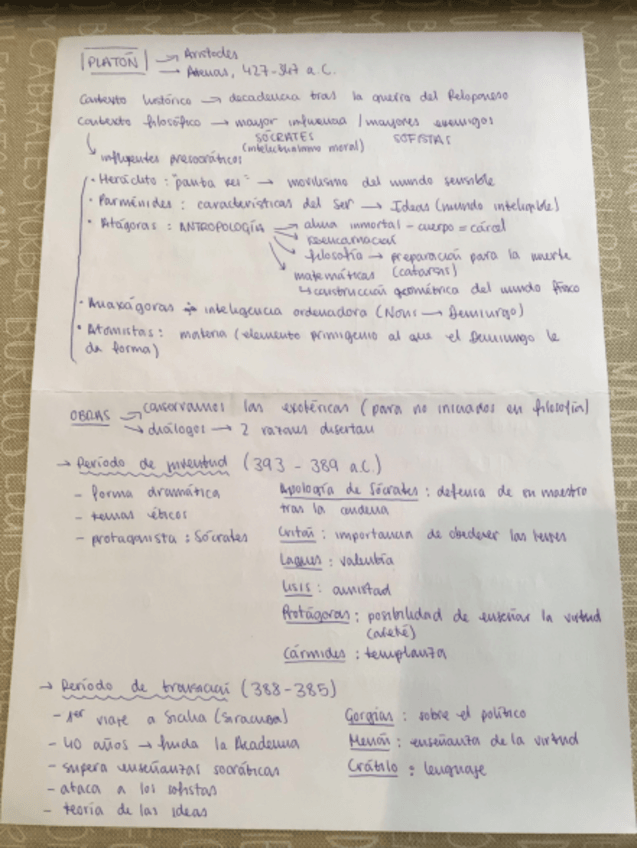 PLATÓN → Aristocles
→ Atenas, 427-347 a.C.
Contexto histórico → decadencia tras la guerra del Peloponeso
Contexto filosófico → mayor influencia / mayores enemigos
SÓCRATES SOFISTAS
(intelectualismo moral)
influyentes presocráticos
• Heráclito: "panta rei" → movilismo del mundo sensible
• Parménides: características del Ser → Ideas (mundo inteligible)
• Pitágoras: ANTROPOLOGÍA → alma inmortal - cuerpo = cárcel
→ reencarnación
→ filosofía → preparación para la muerte
→ matemáticas (catarsis)
↳ construcción geométrica del mundo físico
• Anaxágoras → inteligencia ordenadora (Nous → Demiurgo)
• Atomistas: materia (elemento primigenio al que el Demiurgo le
da forma)
OBRAS → conservamos las exotéricas (para no iniciados en filosofía)
→ diálogos → 2 razones disertan
→ Período de juventud (393 - 389 a.C.)
- forma dramática
- temas éticos
- protagonista: Sócrates
Apología de Sócrates: defensa de su maestro
tras la condena
Critón: importancia de obedecer las leyes
Laques: valentía
Lisis: amistad
Protágoras: posibilidad de enseñar la virtud
(areté)
Cármides: templanza
→ Período de transición (388-385)
- 1er viaje a Sicilia (Siracusa)
- 40 años → funda la Academia
- supera enseñanzas socráticas
- ataca a los sofistas
- teoría de las ideas
Gorgias: sobre el político
Menón: enseñanza de la virtud
Crátilo: lenguaje